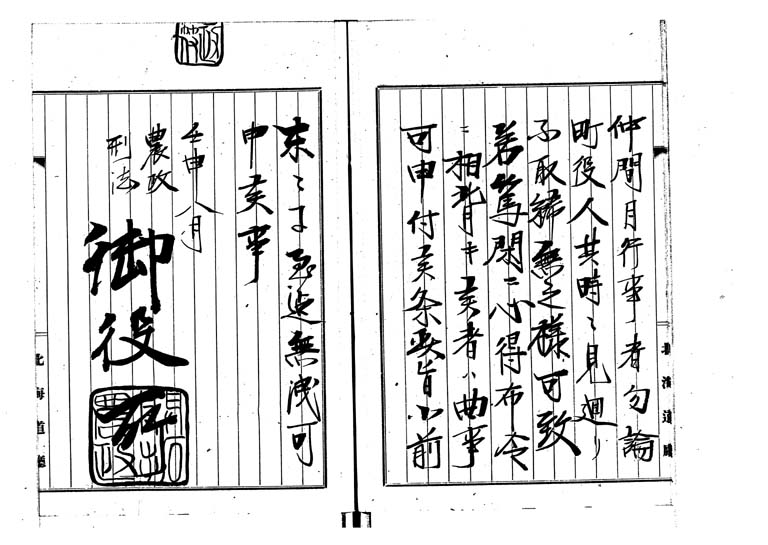 仲間月行事ノ者勿論
町役人其時々見廻リ
不取締無之様可致
若等閑ニ心得布令
ニ相背キ候者ハ曲事
可申付候条此旨小前
末々マテ至迄無洩可
申候事
壬申八月
農政
刑法
御役所
北海道廳
北海道廳